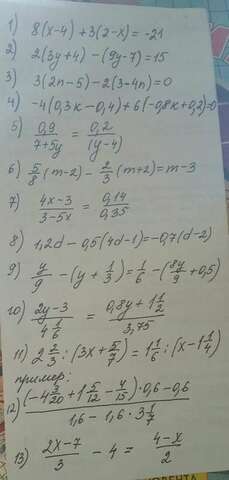 1) 8(x-4)+3(2-x)=-21
2) 2(3y+4)-(9y-7)=15
3) 3(2n-5)-2(3+4n)=0
4) -4(0,3к-0,4)+6(-0,8к+0,2)=0
5) 0,9/(7+5y) = 0,2/(y-4)
6) 5/8(m-2)-2/3(m+2)=m-3
7) (4x-3)/(3-5x) = 0,14/0,35
8) 1,2d-0,5(4d-1)=-0,7(d-2)
9) y/9-(y+1/3)=1/6-(8y/9+0,5)
10) (2y-3)/(4 1/6) = (0,8y+1 1/2)/3,75
11) 2 2/3:(3x+5/7)=1 1/6:(x-1 1/4)
пример:
12) ((-4 3/20+1 5/12-4/15)·0,6-0,6)/(1,6-1,6·3 1/7)
13) (2x-7)/3-4=(4-x)/2